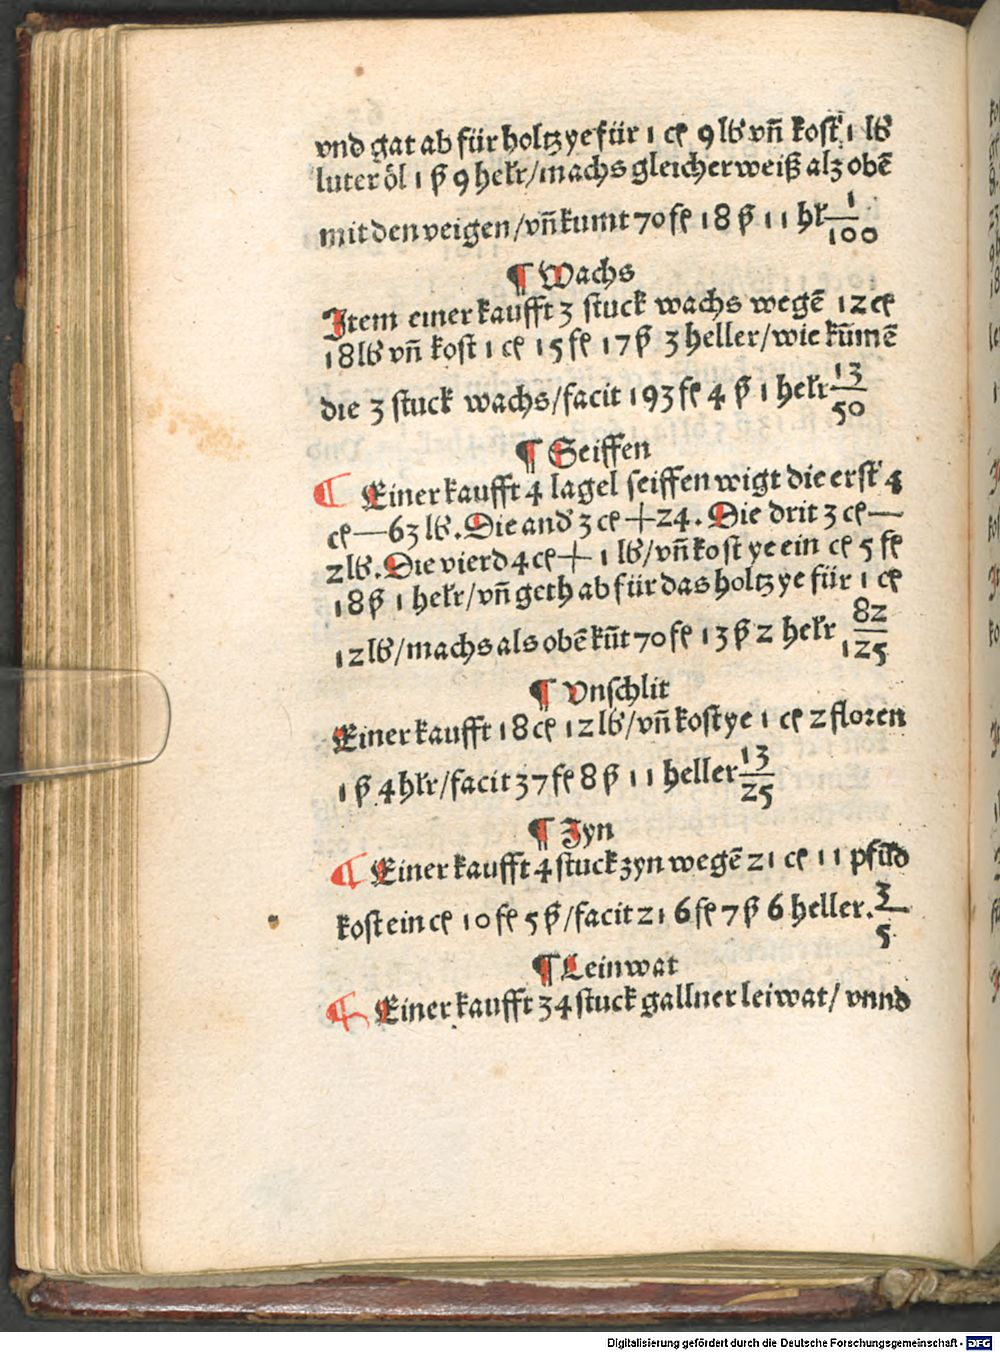 vnd gat ab für holtz ye für 1 cꝭ 9 lb vn̄ kost 1 lb
luter öl 1 ß 9 helr/machs gleicher weiß alz obē
mit den veigen/vn̄ kumt 70 fl 18 ß 11 hlr 1/100
¶ Wachs
Item einer kaufft 3 stuck wachs wegē 12 cꝭ
18 lb vn̄ kost 1 cꝭ 15 fl 17 ß 3 heller/wie kūmē
die 3 stuck wachs/facit 193 fl 4 ß 1 helr 13/50
¶ Seiffen
¶ Einer kaufft 4 lagel seiffen wigt die erst 4
cꝭ — 63 lb. Die and 3 cꝭ + 24. Die drit 3 cꝭ —
2 lb. Die vierd 4 cꝭ + 1 lb/vn̄ kost ye ein cꝭ 5 fl
18 ß 1 helr/vn̄ geth ab für das holtz ye für 1 cꝭ
12 lb/machs als obē kūt 70 fl 13 ß 2 helr 82/125
¶ Vnschlit
Einer kaufft 18 cꝭ 12 lb/vn̄ kost ye 1 cꝭ 2 floren
1 ß 4 hlr/facit 37 fl 8 ß 11 heller 13/25
¶ Zyn
¶ Einer kaufft 4 stuck zyn wegē 21 cꝭ 11 pfūd
kost ein cꝭ 10 fl 5 ß/facit 216 fl 7 ß 6 heller. 3/5
¶ Leinwat
¶ Einer kaufft 34 stuck gallner leiwat/ vnnd
Digitalisierung gefördert durch die Deutsche Forschungsgemeinschaft - DFG